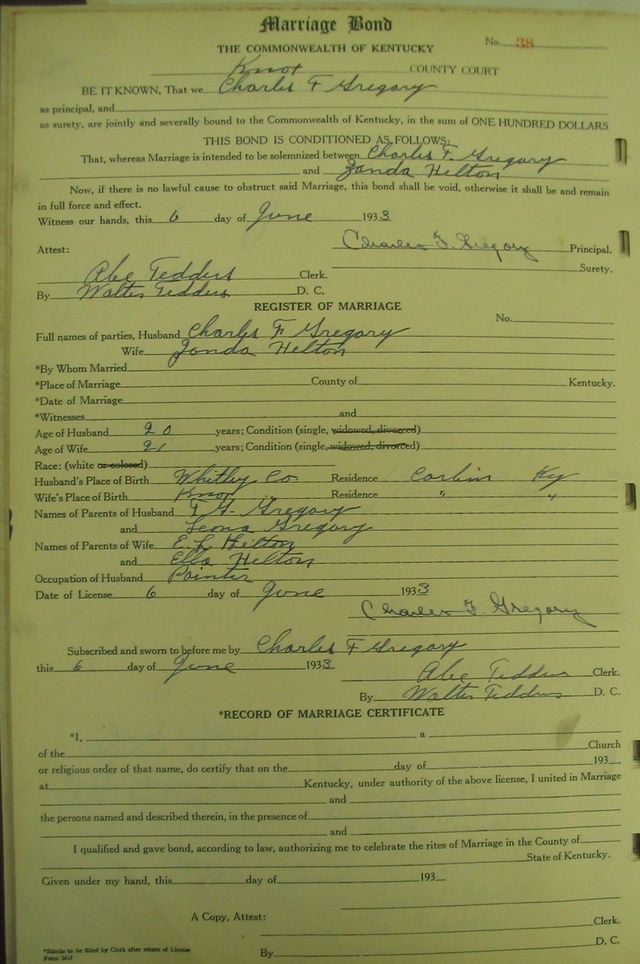 Marriage Bond
THE COMMONWEALTH OF KENTUCKY No. 38
Knox COUNTY COURT
BE IT KNOWN, That we Charles F Gregory
as principal, and
as surety, are jointly and severally bound to the Commonwealth of Kentucky, in the sum of ONE HUNDRED DOLLARS
THIS BOND IS CONDITIONED AS FOLLOWS:
That, whereas Marriage is intended to be solemnized between Charles F. Gregory
and Zanda Helton
Now, if there is no lawful cause to obstruct said Marriage, this bond shall be void, otherwise it shall be and remain
in full force and effect.
Witness our hands, this 6 day of June 1933
Attest: Charles F. Gregory Principal.
Abe Tedders Clerk. Surety.
By Walter Tedders D. C.
REGISTER OF MARRIAGE
No.
Full names of parties, Husband Charles F Gregory
Wife Zanda Helton
*By Whom Married
*Place of Marriage County of Kentucky.
*Date of Marriage
*Witnesses and
Age of Husband 20 years; Condition (single, widowed, divorced)
Age of Wife 21 years; Condition (single, widowed, divorced)
Race: (white or colored)
Husband's Place of Birth Whitley Co Residence Corbin Ky
Wife's Place of Birth Knox Residence " "
Names of Parents of Husband Gregory
and Leona Gregory
Names of Parents of Wife E. L Helton
and Ella Helton
Occupation of Husband Painter
Date of License 6 day of June 1933
Charles F. Gregory
Subscribed and sworn to before me by Charles F Gregory
this 6 day of June 1933 Abe Tedders Clerk.
By Walter Tedders D. C.
*RECORD OF MARRIAGE CERTIFICATE
*I, a
of the Church
or religious order of that name, do certify that on the day of 193 .
at Kentucky, under authority of the above license, I united in Marriage
and
the persons named and described therein, in the presence of
and
I qualified and gave bond, according to law, authorizing me to celebrate the rites of Marriage in the County of
State of Kentucky.
Given under my hand, this day of 193
A Copy, Attest: Clerk.
By D. C.
*Blanks to be filled by Clerk after return of License